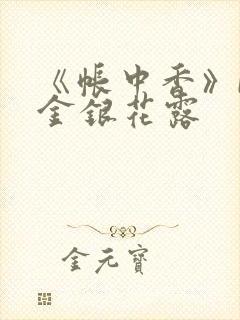 《帐中香》
金银花露
金元宝